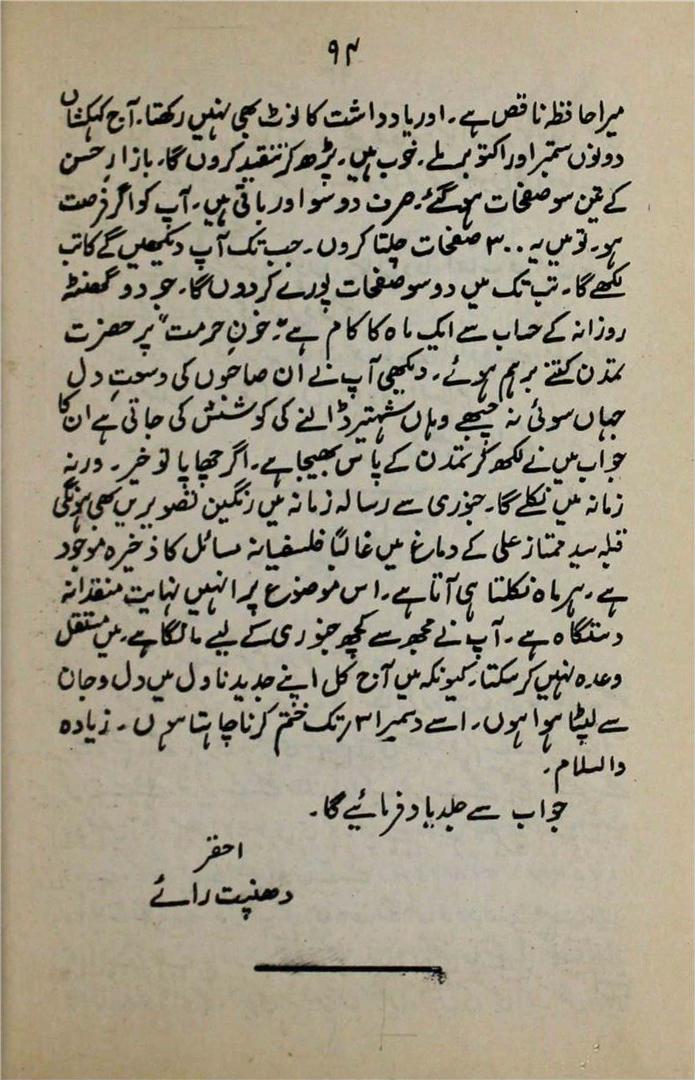 ۹۴
میرا حافظہ ناقص ہے۔ اور یادداشت کا نوٹ بھی نہیں رکھتا۔ آج کہکشاں
دونوں ستمبر اور اکتوبر ملے۔ خوب ہیں۔ پڑھ کر تنقید کروں گا۔ بازارِ حسن
کے تین سو صفحات ہو گئے۔ صرف دو سو اور باقی ہیں۔ آپ کو اگر فرصت
ہو۔ تو میں یہ ۳۰۰ صفحات چلتا کروں۔ جب تک آپ دیکھیں گے کاتب
لکھے گا۔ تب تک میں دو سو صفحات پورے کر دوں گا۔ جو دو گھنٹہ
روزانہ کے حساب سے ایک ماہ کا کام ہے۔ "خونِ حرمت" پر حضرت
تمدن کتنے برہم ہوئے۔ دیکھی آپ نے ان صاحبوں کی وسعتِ دل
جہاں سوئی نہ چبھے وہاں شہتیر ڈالنے کی کوشش کی جاتی ہے ان کا
جواب میں نے لکھ کر تمدن کے پاس بھیجا ہے۔ اگر چھاپا تو خیر۔ ورنہ
زمانہ میں نکلے گا۔ جنوری سے رسالہ زمانہ میں رنگین تصویریں بھی ہونگی
قبلہ سید ممتاز علی کے دماغ میں غالباً فلسفیانہ مسائل کا ذخیرہ موجود
ہے۔ ہر ماہ نکلتا ہی آتا ہے۔ اس موضوع پر انہیں نہایت منقدانہ
دستگاہ ہے۔ آپ نے مجھ سے کچھ جنوری کے لیے مانگا ہے۔ میں مستقل
وعدہ نہیں کر سکتا۔ کیونکہ میں آج کل اپنے جدید ناول میں دل و جان
سے لپٹا ہوا ہوں۔ اسے دسمبر ۳۱ر تک ختم کرنا چاہتا ہوں۔ زیادہ
والسلام۔
جواب سے جلد یاد فرمائیے گا۔
احقر
دھنپت رائے